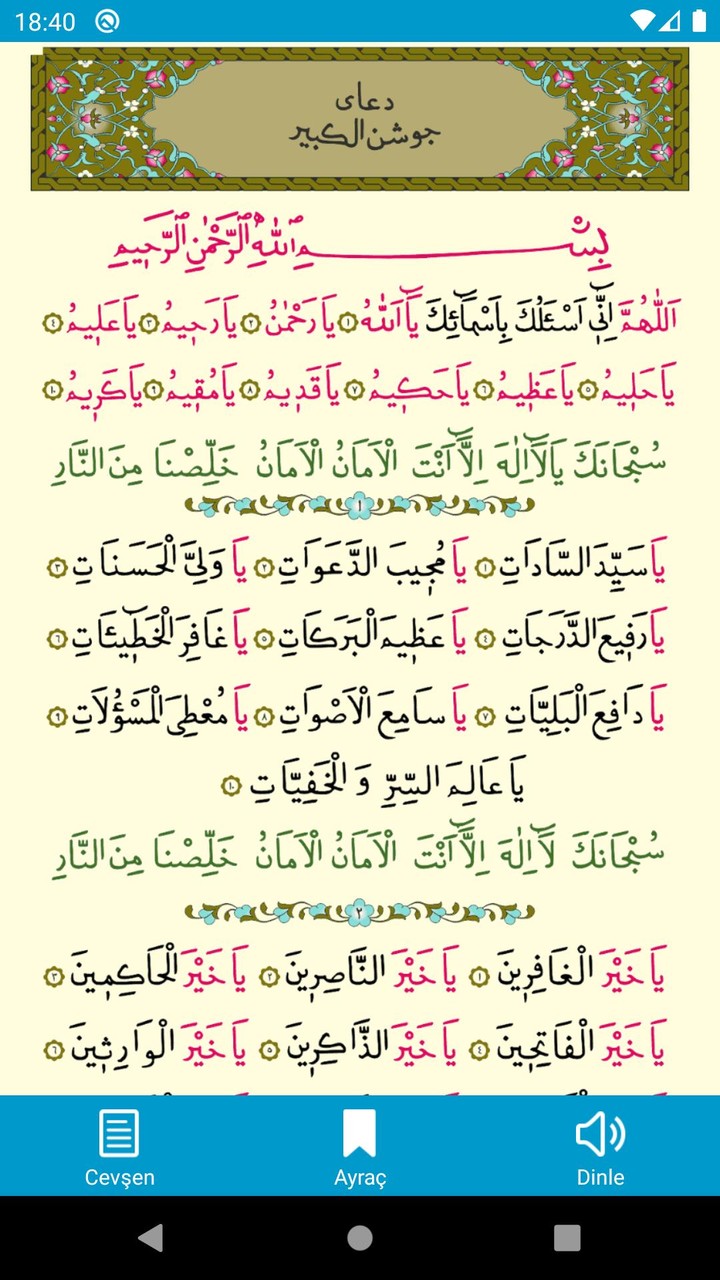 18:40
دعای
جوشن الكبير
بِسْمِ اللّٰهِ الرَّحْمٰنِ الرَّحِيمِ
اَللّٰهُمَّ اِنِّٓي اَسْئَلُكَ بِاَسْمَٓائِكَ يَٓا اَللّٰهُ ١ يَا رَحْمٰنُ ٢ يَا رَحِيمُ ٣ يَا عَلِيمُ ٤
يَا حَلِيمُ ٥ يَا عَظِيمُ ٦ يَا حَكِيمُ ٧ يَا قَدِيمُ ٨ يَا مُقِيمُ ٩ يَا كَرِيمُ ١٠
سُبْحَانَكَ يَا لَٓا اِلٰهَ اِلَّٓا اَنْتَ الْاَمَانُ الْاَمَانُ خَلِّصْنَا مِنَ النَّارِ
١
يَا سَيِّدَ السَّادَاتِ ١ يَا مُجِيبَ الدَّعَوَاتِ ٢ يَا وَلِيَّ الْحَسَنَاتِ ٣
يَا رَفِيعَ الدَّرَجَاتِ ٤ يَا عَظِيمَ الْبَرَكَاتِ ٥ يَا غَافِرَ الْخَطِٓيئَاتِ ٦
يَا دَافِعَ الْبَلِيَّاتِ ٧ يَا سَامِعَ الْاَصْوَاتِ ٨ يَا مُعْطِيَ الْمَسْؤُلَاتِ ٩
يَا عَالِمَ السِّرِّ وَ الْخَفِيَّاتِ ١٠
سُبْحَانَكَ لَٓا اِلٰهَ اِلَّٓا اَنْتَ الْاَمَانُ الْاَمَانُ خَلِّصْنَا مِنَ النَّارِ
٢
يَا خَيْرَ الْغَافِرِينَ ١ يَا خَيْرَ النَّاصِرِينَ ٢ يَا خَيْرَ الْحَاكِمِينَ ٣
يَا خَيْرَ الْفَاتِحِينَ ٤ يَا خَيْرَ الذَّاكِرِينَ ٥ يَا خَيْرَ الْوَارِثِينَ ٦
Cevşen
Ayraç
Dinle